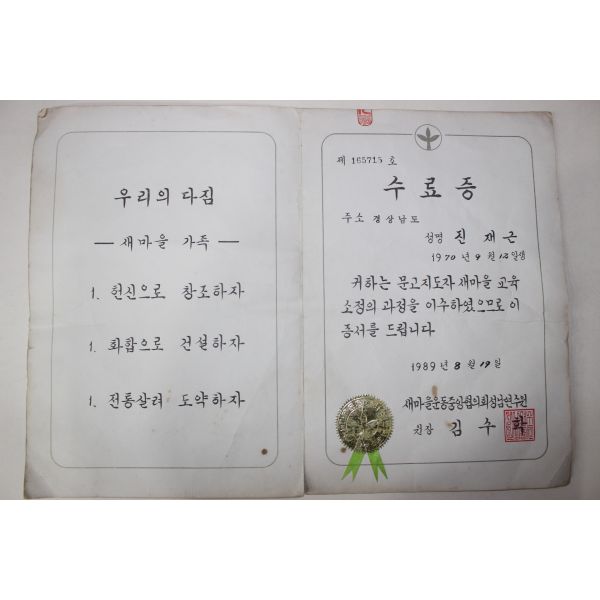 우리의 다짐
— 새마을 가족 —
1. 헌신으로 창조하자
1. 화합으로 건설하자
1. 전통살려 도약하자
제 165715 호
수료증
주소 경상남도
성명 진재근
1970년 9월 12일생
귀하는 문고지도자 새마을 교육
소정의 과정을 이수하였으므로 이
증서를 드립니다.
1989년 8월 19일
새마을운동중앙협의회성남연수원
원장 김수학